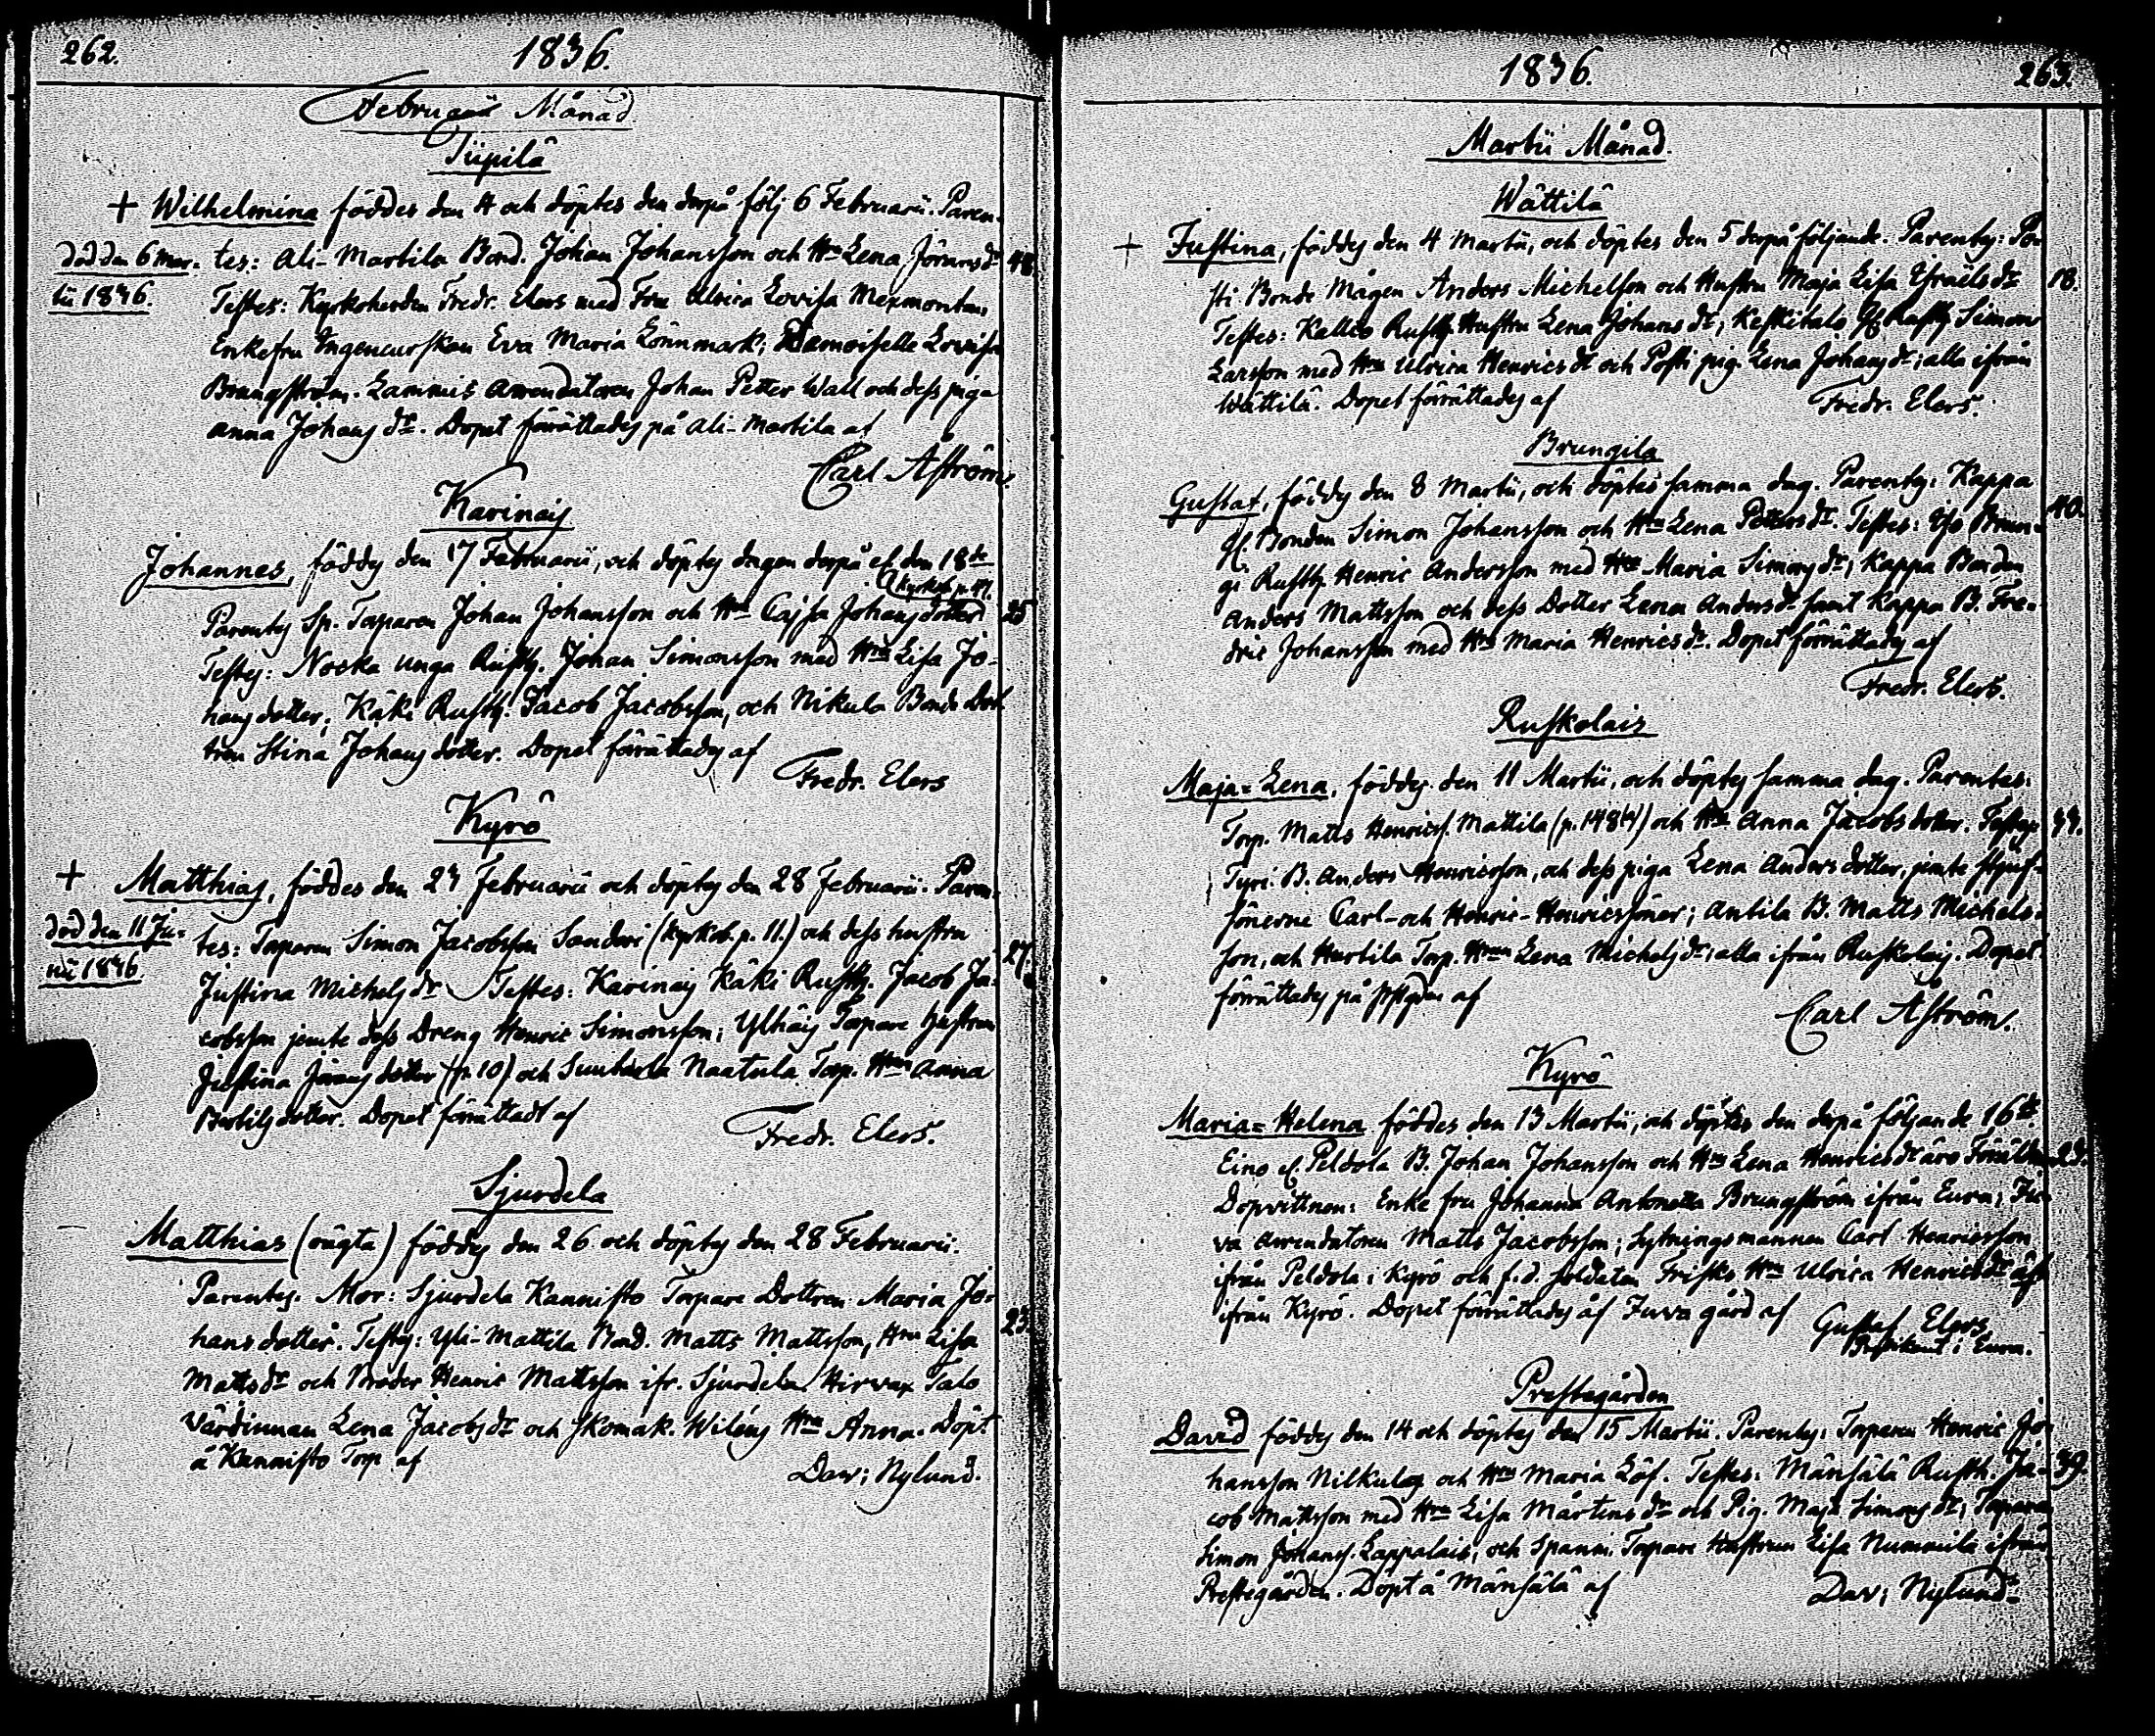 262.
1836.
Februarii Månad.
Tiipilä
+ Wilhelmina föddes den 4 och döptes den derpå följ 6 Februarii. Paren-
död den 6 Mar-
tii 1836.
tes: Ali-Martila Bond. Johan Johansson och Hru Lena Jöransdr 48
Testes: Kyrkoherden Fredr. Elers med Fru Ulrica Lovisa Mexmontan,
Enkefru Ingeneurskan Eva Maria Lönnmark; Damoiselle Lovisa
Brungström. Lammis Arrendatoren Johan Petter Wall och dess piga
Anna Johans dr. Dopet förrättades på Ali-Martila af
Carl Åström.
Karinais
Johannes, föddes den 17 Februarii, och döptes dagen derpå el. den 18de
(kyrkob. p. 47.
Parentes Sp. Torparen Johan Johansson och Hru Cajsa Johansdotter 25
Testes: Nocka unga Rusth. Johan Simonsson med Hru Lisa Jo-
hansdotter; Käki Rusth. Jacob Jacobsson, och Nikula Bonde Dot-
tren Stina Johans dotter. Dopet förrättades af
Fredr. Elers
Kyrö
+ Matthias, föddes den 27 Februarii och döptes den 28 Februarii. Paren-
död den 11 Ju-
nii 1836.
tes: Torparen Simon Jacobsson Sondroi (kyrkob. p. 11.) och dess hustru 27.
Justina Michels dr Testes: Karinais Käki Rusth. Jacob Ja-
cobsson jemte dess Dreng Henric Simonsson; Ylhäis Torpare hustrun
Justina Jörans dotter (p. 10) och Naatula Torp. Hrun Anna
Bertils dotter. Dopet förrättadt af
Fredr. Elers.
Sjurdela
Matthias (oägta) föddes den 26 och döptes den 28 Februarii.
Parentes. Mor: Sjurdela Kannisto Torpare Dottren Maria Jo-
hans dotter. Testes: Yli-Mattila Bond. Matts Mattsson, Hru Lisa 23.
Mattsdr och Broder Henric Mattsson ifr. Sjurdela. Hirvax Talo
Värdinnan Lena Jacobsdr och Skomak. Wiléns Hru Anna. Döpt
å Kannisto Torp af
Dav; Nylund.
1836.
263.
Martii Månad.
Wättilä
+ Justina, föddes den 4 Martii, och döptes den 5 derpå följande. Parentes: Po-
sti Bonde Mågen Anders Michelsson och Hustru Maja Lisa Israelsdr 18.
Testes: Kallio Rusth. Hustru Lena Johans dr, Keskitalo Rusth Simon
Larsson med Hru Ulrica Henrics dr och Posti pig. Lena Johans dr; alla ifrån
Wättilä. Dopet förrättades af Fredr. Elers.
Brungila
Gustaf, föddes den 8 Martii, och döptes samma dag. Parentes: Kappa
Bonden Simon Johansson och Hru Lena Petters dr. Testes: Iso Brun- 40.
gi Rusth. Henric Andersson med Hru Maria Simons dr; Kappa Bonden
Anders Mattsson och dess Dotter Lena Anders dr samt Kappa B. Fre-
dric Johansson med Hru Maria Henrics dr. Dopet förrättades af
Fredr. Elers.
Ruskolais
Maja-Lena, föddes den 11 Martii, och döptes samma dag. Parentes:
Torp. Matts Henricss. Mattila och Hru Anna Jacobs dotter. Testes
Tyri B. Anders Henricsson, och dess piga Lena Anders dotter, jemte styuf-
sönerne Carl- och Henric-Henricssöner; Antila B. Matts Michels-
son, och Hurtila Torp. Hrun Lena Michels dr; alla ifrån Ruskolais. Dopet
förrättades på af
Carl Åström.
Kyrö
Maria-Helena föddes den 13 Martii, och döptes den derpå följande 16de.
Eino el. Peldola B. Johan Johansson och Hru Lena Henricsdr äro Föräldr.
Dopvittnen: Enke fru Johanna Antonetta Brungström ifrån Eura; Ju-
va Arrendatoren Matts Jacobsson; Sytningsmannen Carl Henricsson
ifrån Peldola i Kyrö och f.d. soldaten Frisks Hru Ulrica Henricsdr
ifrån Kyrö. Dopet förrättades å Juva gård af Gustaf Elers,
i Eura.
Prestegården
David föddes den 14 och döptes den 15 Martii. Parentes: Torparen Henric Jo-
hansson Nilkulas och Hru Maria Löf. Testes: Mänsälä Rusth. Ja- 39.
cob Mattsson med Hru Lisa Mårtens dr och Pig. Maja Simons dr; Torparen
Simon Johanss. Lappalais, och Spanni Torpare Hustrun Lisa Nummila ifrån
Prestegården. Döpt å Mänsälä af Dav; Nylund